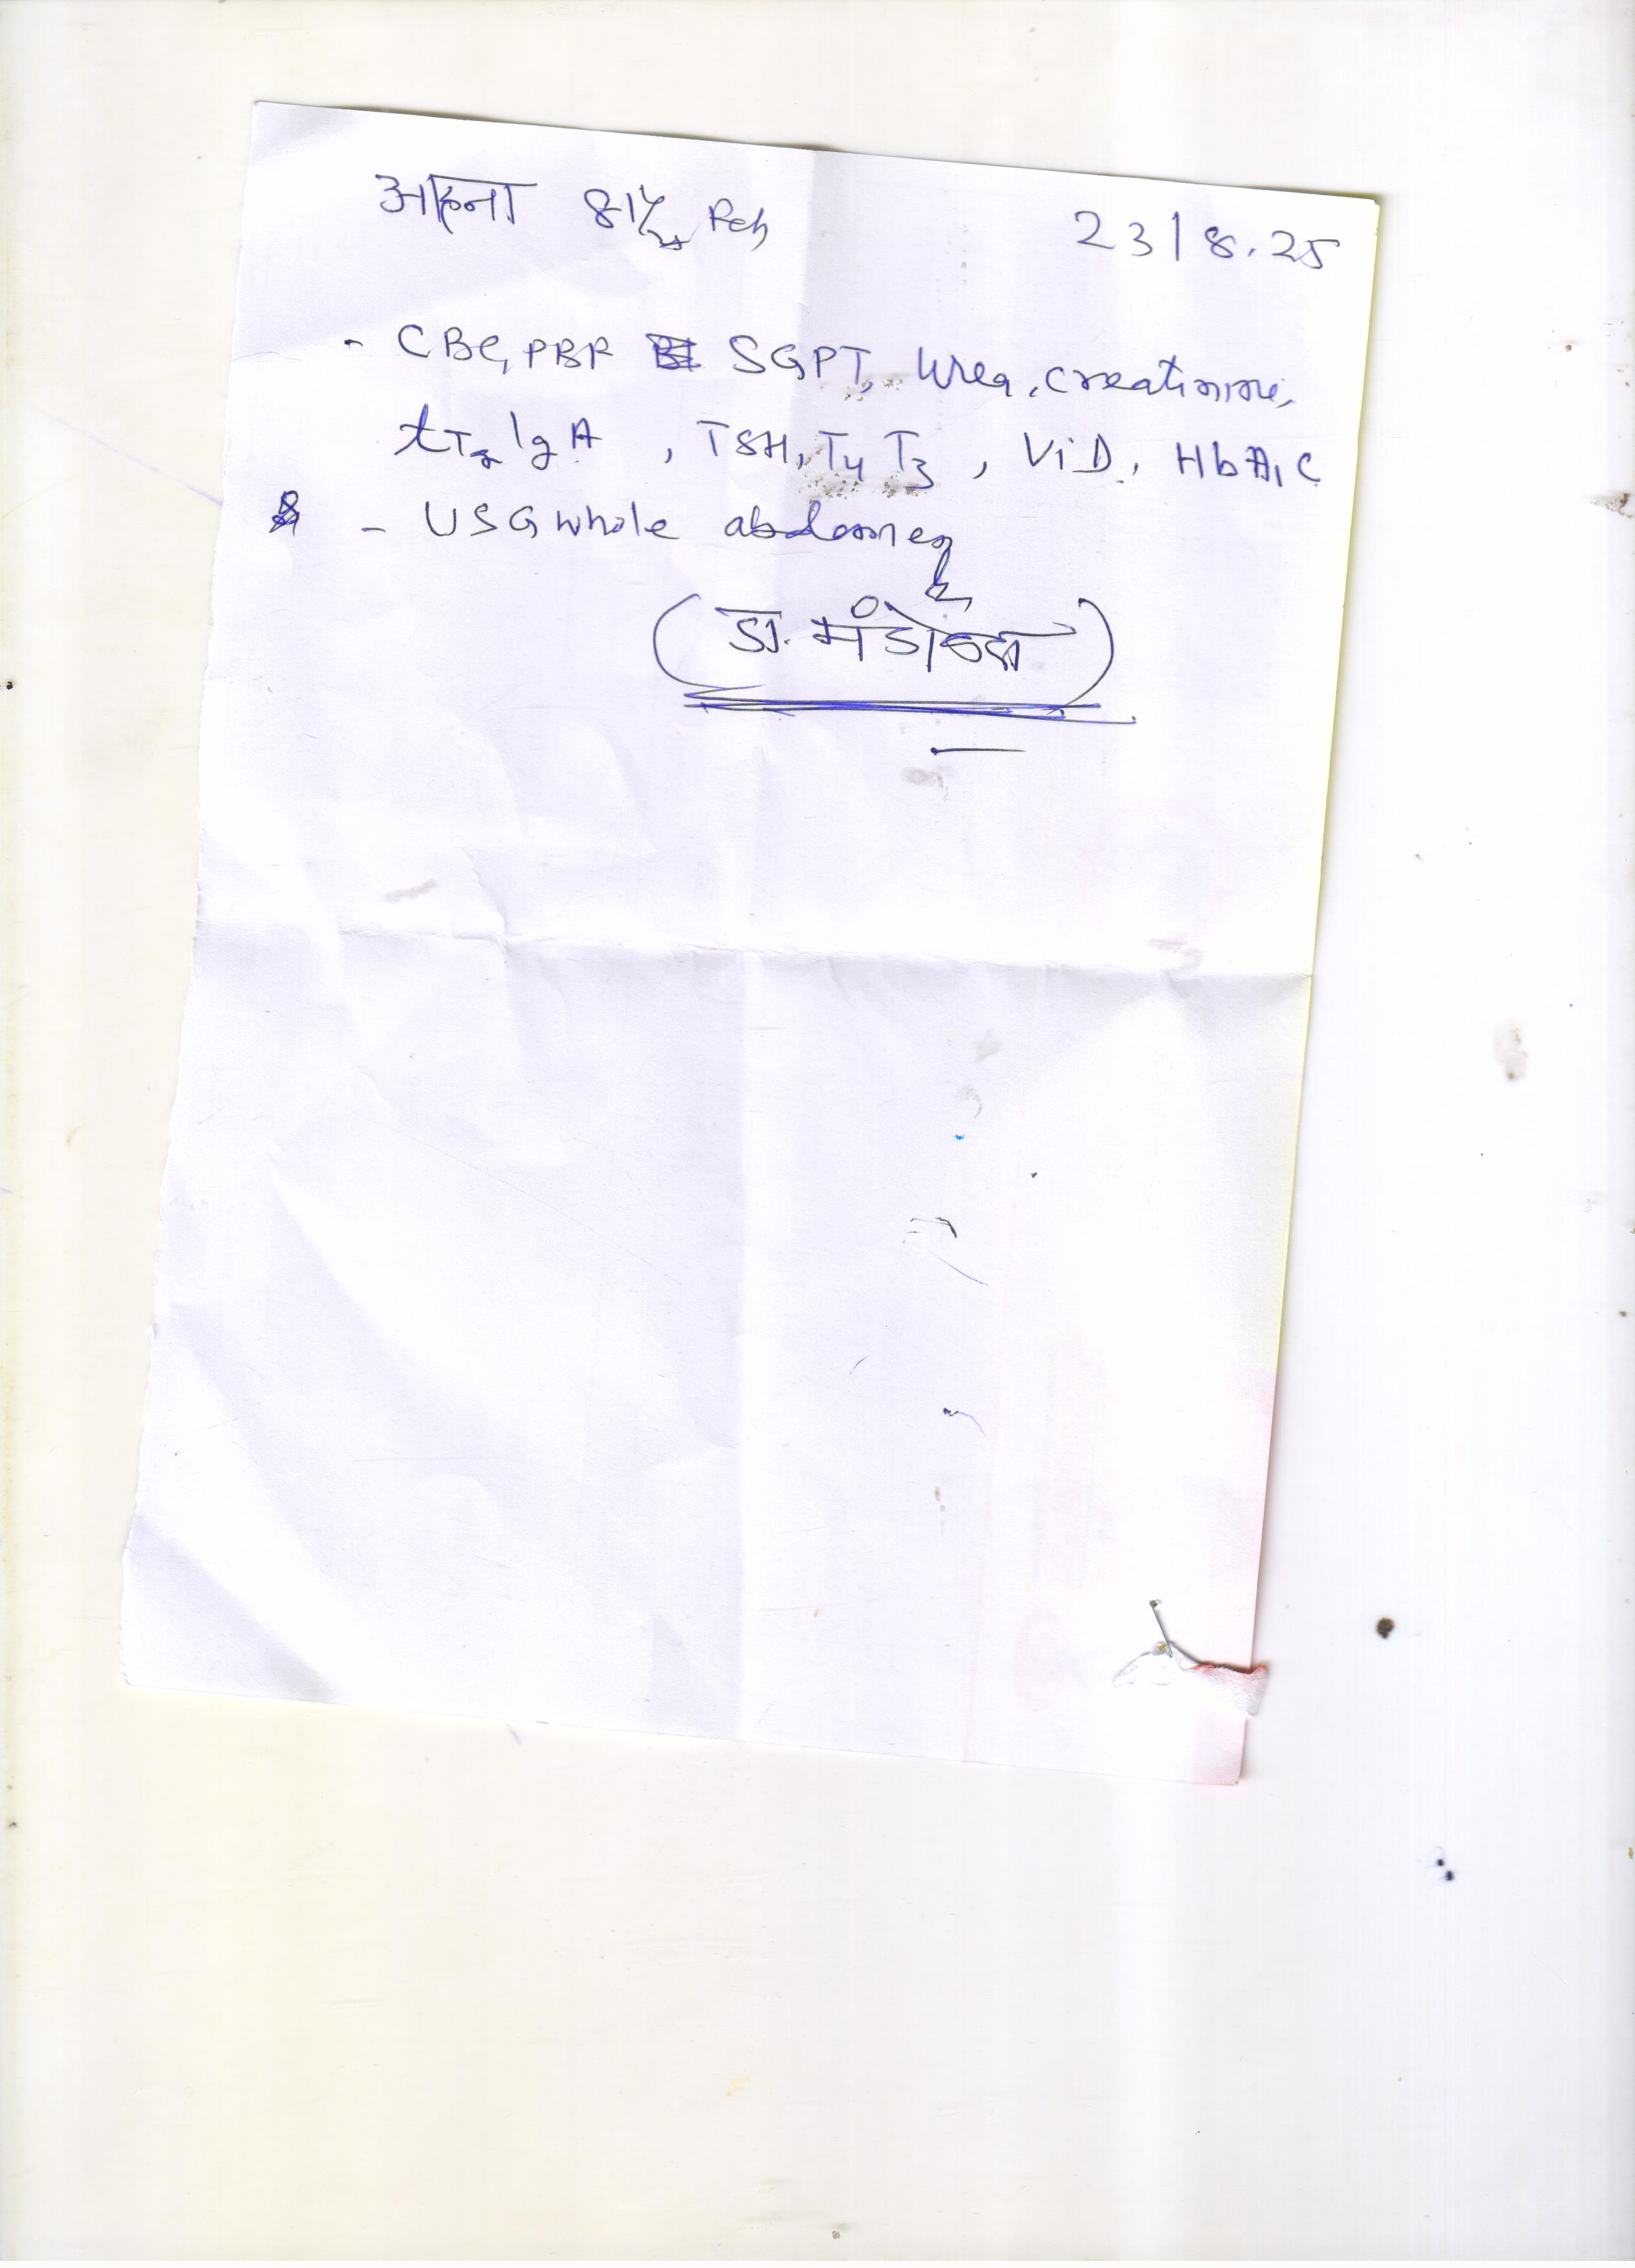 अहना 8 1/2 Feh 23/8.25
- CBC, PBF SGPT, Urea, creatinine,
tTg IgA, TSH, T4 T3, Vi D, HbA1C
- USG whole abdomen
(डा. मंडोवरा)